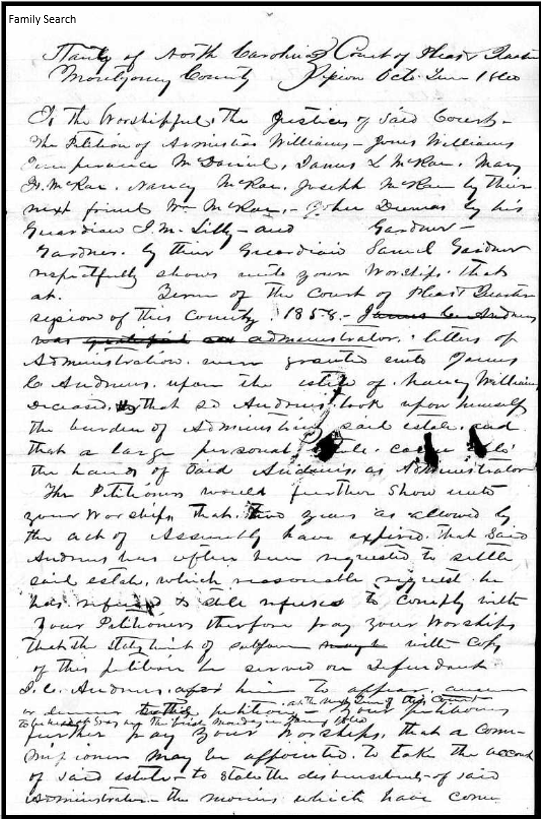 Family Search
State of North Carolina Court of Pleas & Quarter
Montgomery County Session Oct. Term 1860
To the Worshipful, The Justices of said Court -
The Petition of Arministias Williams - Jones Williams
Temperance McDaniel, Daniel L McRae, Mary
McRae, Nancy McRae, Joseph McRae by their
next friend Wm McRae, - John Dumas by his
Guardian J. M. Lilly - and Gardner -
Gardner. by their Guardian Samuel Gardner
respectfully shows unto your Worships. that
at. Term of the Court of Pleas & Quarter
session of this County, 1858. - James Andrews
was administrator. letters of
Administration were granted unto James
C Andrews. upon the estate of. Nancy Williams
Deceased. that sd Andrews took upon himself
the burden of Administering said estate, and
that a large personal estate. came into
the hands of said Andrews, as Administrator
The Petitioners would further show unto
your Worships, that. two years as allowed by
the act of Assembly have expired. that said
Andrews has often been requested to settle
said estate, which reasonable request he
has refused & still refuses to comply with
Your Petitioners therefore pray your Worships
that the State writ of subpoena with copy
of this petition be served on Defendant
J. C. Andrews. him to appear, answer
or demur petition at the next Term of this Court your petitioners
to be held the first Monday in 1860
further pray your Worships, that a Com-
missioner may be appointed. to take the account
of said estate - to state the disbursements - of said
administrator - the monies which have come